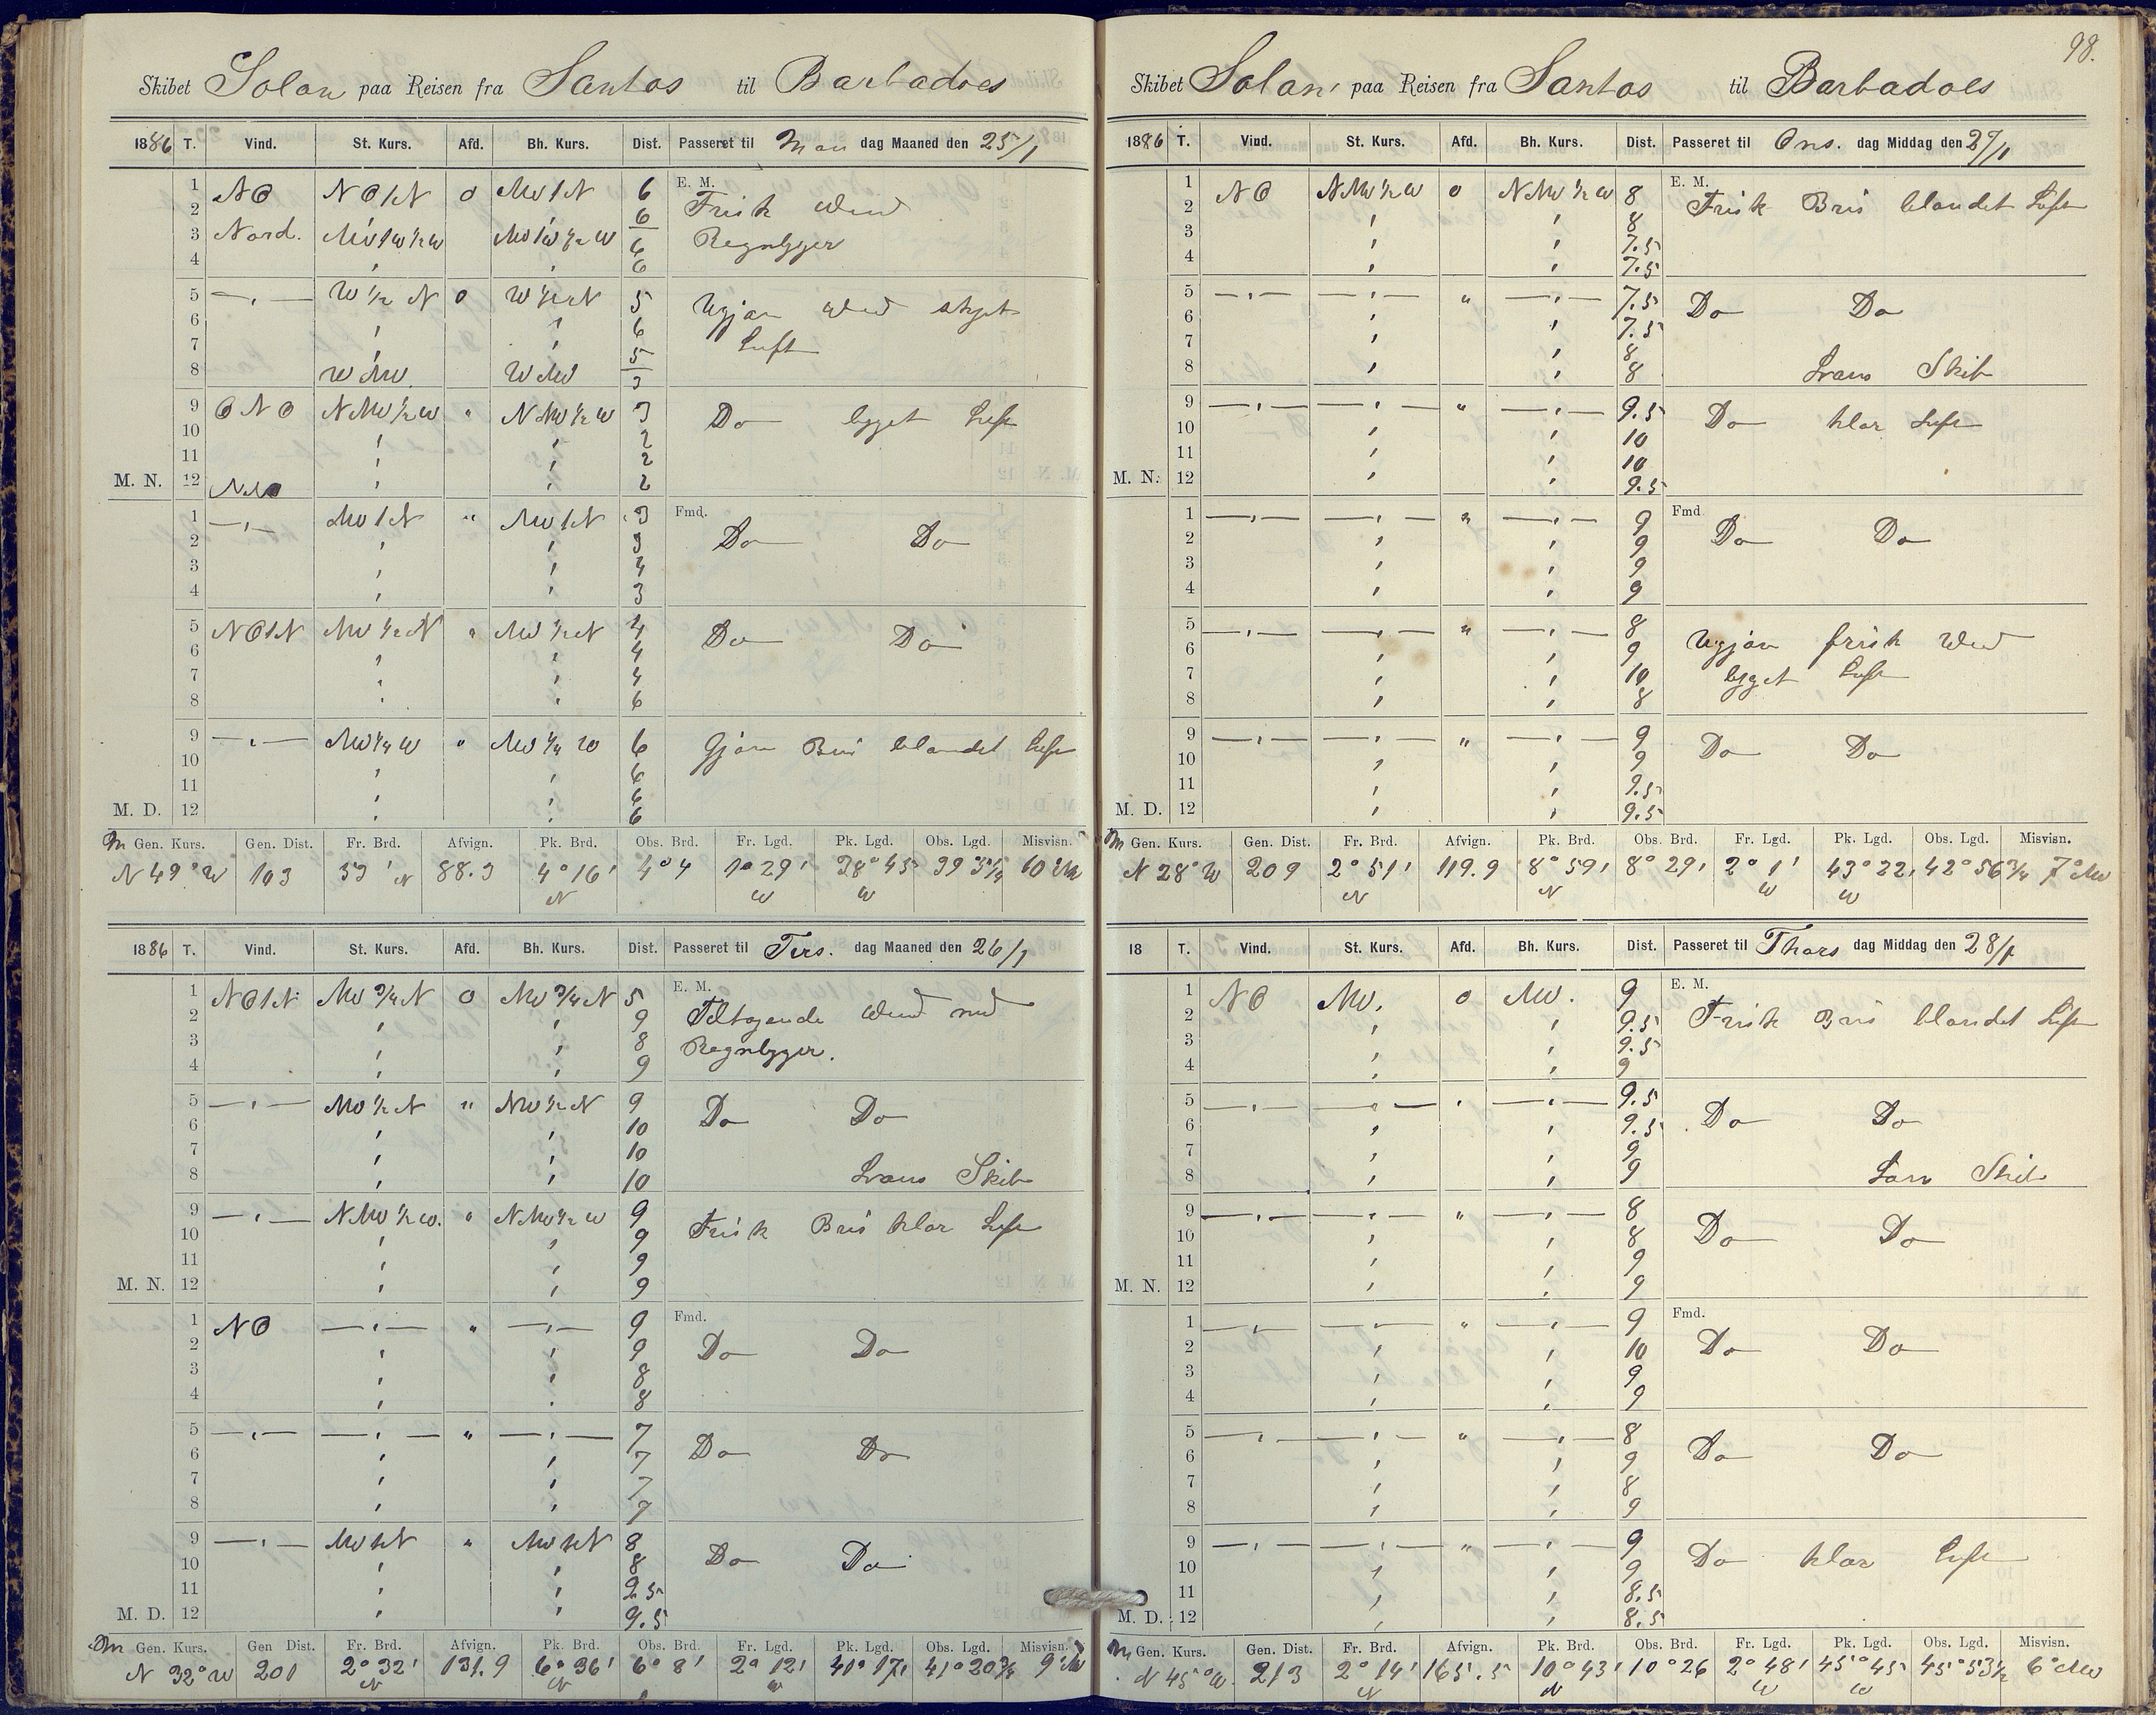 98.
Skibet Solan paa Reisen fra Santos til Barbadoes
1886 T. Vind. St. Kurs. Afd. Bh. Kurs. Dist. Passeret til Man dag Maaned den 25/1
1 NO NO/N 0 NW/N 6 E. M. Frisk Wind
2 6
3 Nord. 6 Regnbyger
4 6
5 —"— W 1/2 N 0 W 1/2 N 5
6 6
7 5 Luft
8 WNW. WNW 3
9 ONO NNW 1/2 W " NNW 1/2 W 3 Do byget Luft
10 2
11 2
M. N. 12 2
1 —"— NW/N " NW/N 3 Fmd. Do Do
2 3
3 4
4 3
5 NO/N NW 1/2 N " NW 1/2 N 4 Do Do
6 4
7 4
8 6
9 —"— NW 1/4 W " NW 1/4 W 6 Bris blandet Luft
10 6
11 6
M. D. 12 6
M Gen. Kurs. Gen. Dist. Fr. Brd. Afvign. Pk. Brd. Obs. Brd. Fr. Lgd. Pk. Lgd. Obs. Lgd. Misvisn.
N 49° W 103 53' N 88.3 4° 16' N 4° 4 1° 29' W 38° 45 W
1886 T. Vind. St. Kurs. Afd. Bh. Kurs. Dist. Passeret til Tirs. dag Maaned den 26/1
1 NO/N NW 3/4 N 0 NW 3/4 N 5 E. M. Tiltagende Wind med
2 9
3 8 Regnbyger.
4 9
5 —"— NW 1/2 N " NW 1/2 N 9 Do Do
6 10
7 10
8 10 Skib
9 —"— NNW 1/2 W. " NNW 1/2 W 9 Frisk Bris klar Luft
10 9
11 9
M. N. 12 9
1 NO —"— " —"— 9 Fmd. Do Do
2 9
3 8
4 8
5 —"— —"— " —"— 7 Do Do
6 7
7 7
8 7
9 —"— " 8 Do Do
10 8
11 9.5
M. D. 12 9.5
M Gen. Kurs. Gen Dist. Fr. Brd. Afvign. Pk. Brd. Obs. Brd. Fr. Lgd. Pk. Lgd. Obs. Lgd. Misvisn.
N 32° W 201 2° 32' N 131.9 6° 36' N 6° 8' 2° 12' W 41° 17' 41° 20 3/4
Skibet Solan paa Reisen fra Santos til Barbadoes
1886 T. Vind. St. Kurs. Afd. Bh. Kurs. Dist. Passeret til Ons. dag Middag den 27/1
1 NO NNW 1/2 W 0 NNW 1/2 W 8 E. M. Frisk Bris blandet Luft
2 8
3 7.5
4 7.5
5 —"— —"— " —"— 7.5 Do Do
6 7.5
7 8
8 8 Skib
9 —"— —"— " —"— 9.5 Do klar Luft
10 10
11 10
M. N. 12 9.5
1 —"— —"— " —"— 9 Fmd Do Do
2 9
3 9
4 9
5 —"— —"— " —"— 8 frisk Wind
6 9
7 10 byget Luft
8 8
9 —"— —"— " —"— 9 Do Do
10 9
11 9.5
M. D. 12 9.5
M Gen. Kurs. Gen. Dist. Fr. Brd. Afvign. Pk. Brd. Obs. Brd. Fr. Lgd. Pk. Lgd. Obs. Lgd. Misvisn.
N 28° W 209 2° 51' N 119.9 8° 59' N 8° 29' 2° 1' W 43° 22' W 42° 56 3/4 7° NW
18 T. Vind. St. Kurs. Afd. Bh. Kurs. Dist. Passeret til Thors dag Middag den 28/1
1 NO NW. 0 NW. 9 E. M. Frisk Bris blandet Luft
2 9.5
3 9.5
4 9
5 —"— —"— " —"— 9.5 Do Do
6 9.5
7 9
8 9 Skib
9 —"— —"— " —"— 8 Do Do
10 8
11 9
M. N. 12 9
1 —"— —"— " —"— 9 Fmd. Do Do
2 10
3 9
4 9
5 —"— —"— " —"— 8 Do Do
6 9
7 8
8 9
9 —"— —"— " —"— 9 Do klar Luft
10 9
11 8.5
M. D. 12 8.5
M Gen. Kurs. Gen. Dist. Fr. Brd. Afvign. Pk. Brd. Obs. Brd. Fr. Lgd. Pk. Lgd. Obs. Lgd. Misvisn.
N 45° W. 213 2° 14' N 165.5 10° 43' N 10° 26 2° 48' W 45° 45 W 45° 53 1/2 6° NW